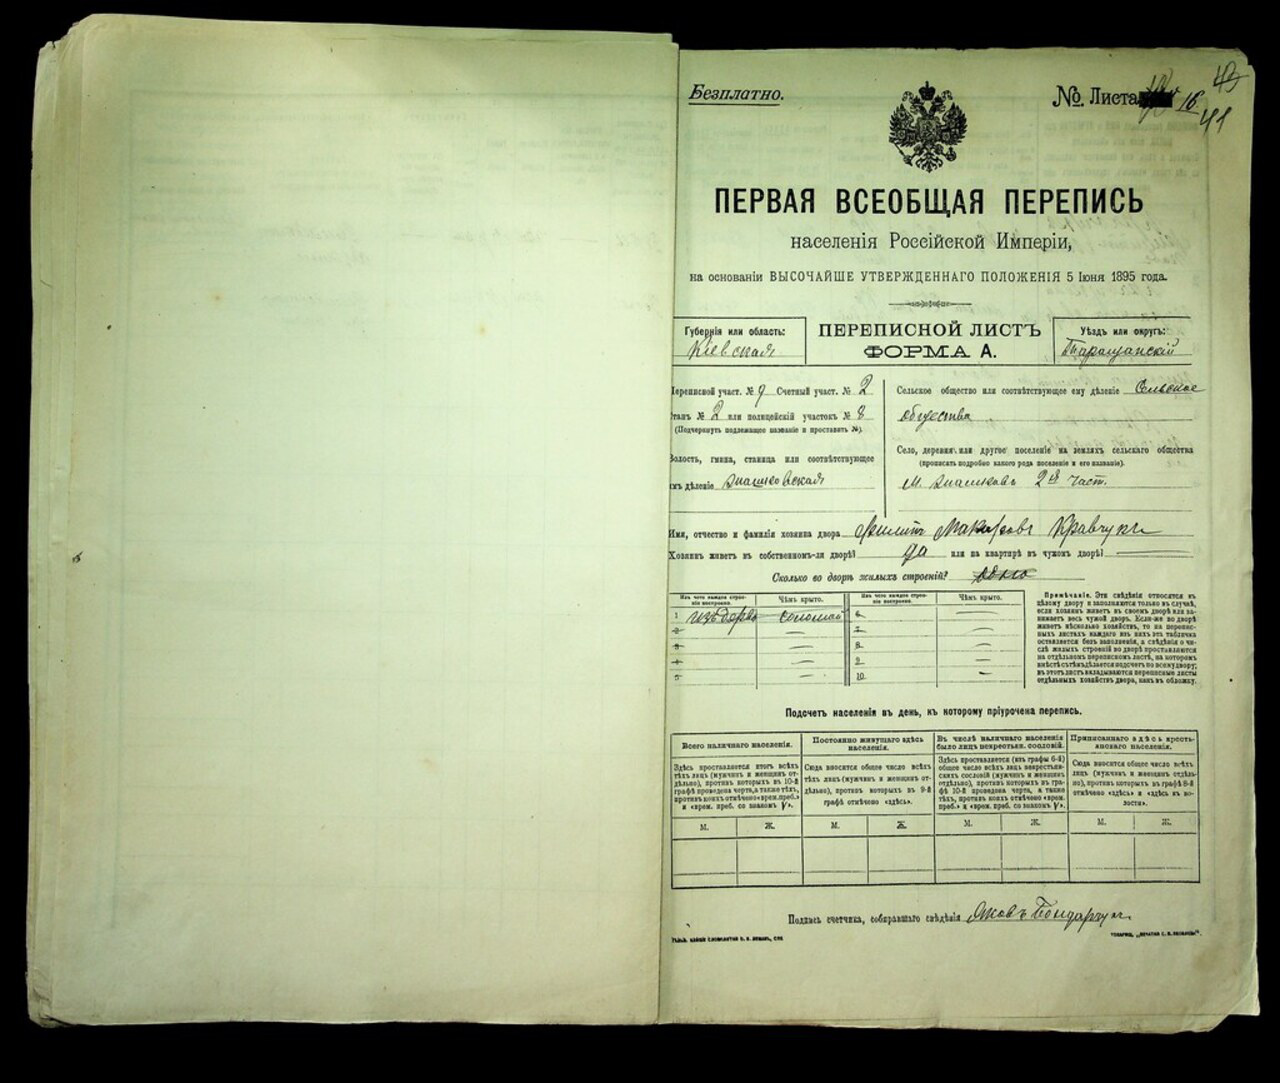 Безплатно.
№ Листа 16.
43
41
ПЕРВАЯ ВСЕОБЩАЯ ПЕРЕПИСЬ
населенія Россійской Имперіи,
на основаніи ВЫСОЧАЙШЕ УТВЕРЖДЕННАГО ПОЛОЖЕНІЯ 5 Іюня 1895 года.
Губернія или область:
Кіевская
ПЕРЕПИСНОЙ ЛИСТЪ
ФОРМА А.
Уѣздъ или округъ:
Таращанскій
Переписной участ. № 9 Счетный участ. № 2
Станъ № 2 или полицейскій участокъ № 8
(Подчеркнуть подлежащее названіе и проставить №).
Волость, гмина, станица или соотвѣтствующее
имъ дѣленіе
Сельское общество или соотвѣтствующее ему дѣленіе Сельское
общества
Село, деревня или другое поселеніе на земляхъ сельскаго общества
(прописать подробно какого рода поселеніе и его названіе).
М. 2й част.
Имя, отчество и фамилія хозяина двора Филипъ Макаровъ Кравчукъ
Хозяинъ живетъ въ собственномъ-ли дворѣ? да или на квартирѣ въ чужомъ дворѣ?
Сколько во дворѣ жилыхъ строеній? одно
Изъ чего каждое строеніе построено. Чѣмъ крыто. Изъ чего каждое строеніе построено. Чѣмъ крыто.
1 изъ дерева соломой 6
2 7
3 8
4 9
5 10.
Примѣчаніе. Эти свѣдѣнія относятся къ
цѣлому двору и заполняются только въ случаѣ,
если хозяинъ живетъ въ своемъ дворѣ или занимаетъ
весь чужой дворъ. Если-же во дворѣ
живетъ нѣсколько хозяйствъ, то на переписныхъ
листахъ каждаго изъ нихъ эта табличка
оставляется безъ заполненія, а свѣдѣнія о числѣ
жилыхъ строеній во дворѣ проставляются
на отдѣльномъ переписномъ листѣ, на которомъ
вмѣстѣ съ тѣмъ дѣлается подсчетъ по всему двору;
въ этотъ листъ вкладываются переписные листы
отдѣльныхъ хозяйствъ двора, какъ въ обложку.
Подсчетъ населенія въ день, къ которому пріурочена перепись.
Всего наличнаго населенія.
Здѣсь проставляется итогъ всѣхъ
тѣхъ лицъ (мужчинъ и женщинъ отдѣльно),
противъ которыхъ въ 10-й
графѣ проведена черта, а также тѣхъ,
противъ коихъ отмѣчено «врем. преб.»
и «врем. преб. со знакомъ V».
Постоянно живущаго здѣсь
населенія.
Сюда вносится общее число всѣхъ
тѣхъ лицъ (мужчинъ и женщинъ отдѣльно),
противъ которыхъ въ 9-й
графѣ отмѣчено «здѣсь».
Въ числѣ наличнаго населенія
было лицъ некрестьян. сословій.
Здѣсь проставляется (изъ графы 6-й)
общее число всѣхъ лицъ некрестьянскихъ
сословій (мужчинъ и женщинъ
отдѣльно), противъ которыхъ въ графѣ
10-й проведена черта, а также
тѣхъ, противъ коихъ отмѣчено «врем.
преб.» и «врем. преб. со знакомъ V».
Приписаннаго здѣсь крестьянскаго
населенія.
Сюда вносится общее число всѣхъ
лицъ (мужчинъ и женщинъ отдѣльно),
противъ которыхъ въ графѣ 8-й
отмѣчено «здѣсь» и «здѣсь въ волости».
М. Ж. М. Ж. М. Ж. М. Ж.
Подпись счетчика, собиравшаго свѣдѣнія Яковъ Бондарчукъ